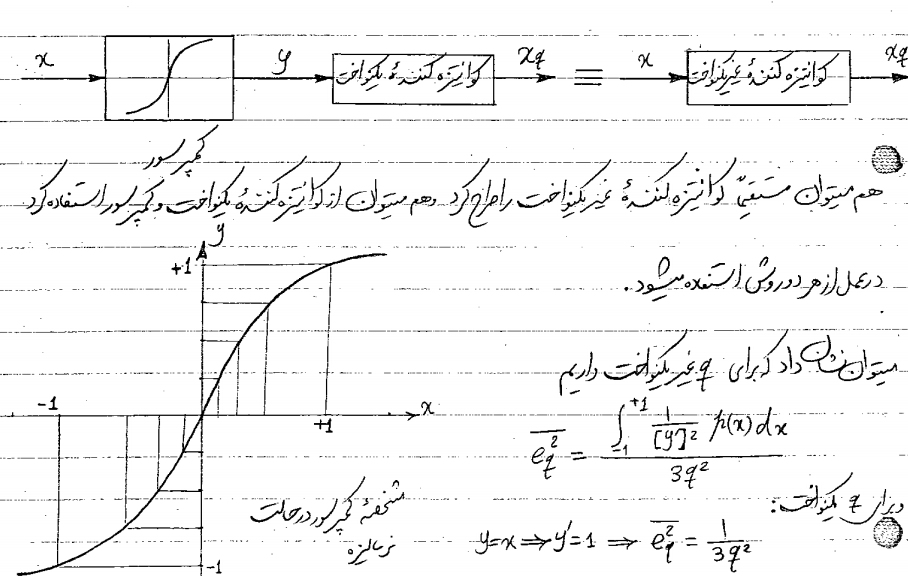 x y کوانتیزه کنندهٔ یکنواخت xq ≡ x کوانتیزه کنندهٔ غیریکنواخت xq
کمپرسور
هم میتوان مستقیماً کوانتیزه کنندهٔ غیریکنواخت را طراح کرد وهم میتوان از کوانتیزه کنندهٔ یکنواخت و کمپرسور استفاده کرد
y
+1
در عمل از هر دو روش استفاده میشود.
میتوان نشان داد که برای q غیریکنواخت داریم
-1 +1 x
eq² = ∫₋₁⁺¹ 1/[y']² p(x) dx / 3q²
وبرای q یکنواخت:
y=x ⇒ y'=1 ⇒ eq² = 1/3q²
مشخصهٔ کمپرسور در حالت
نرمالیزه
-1